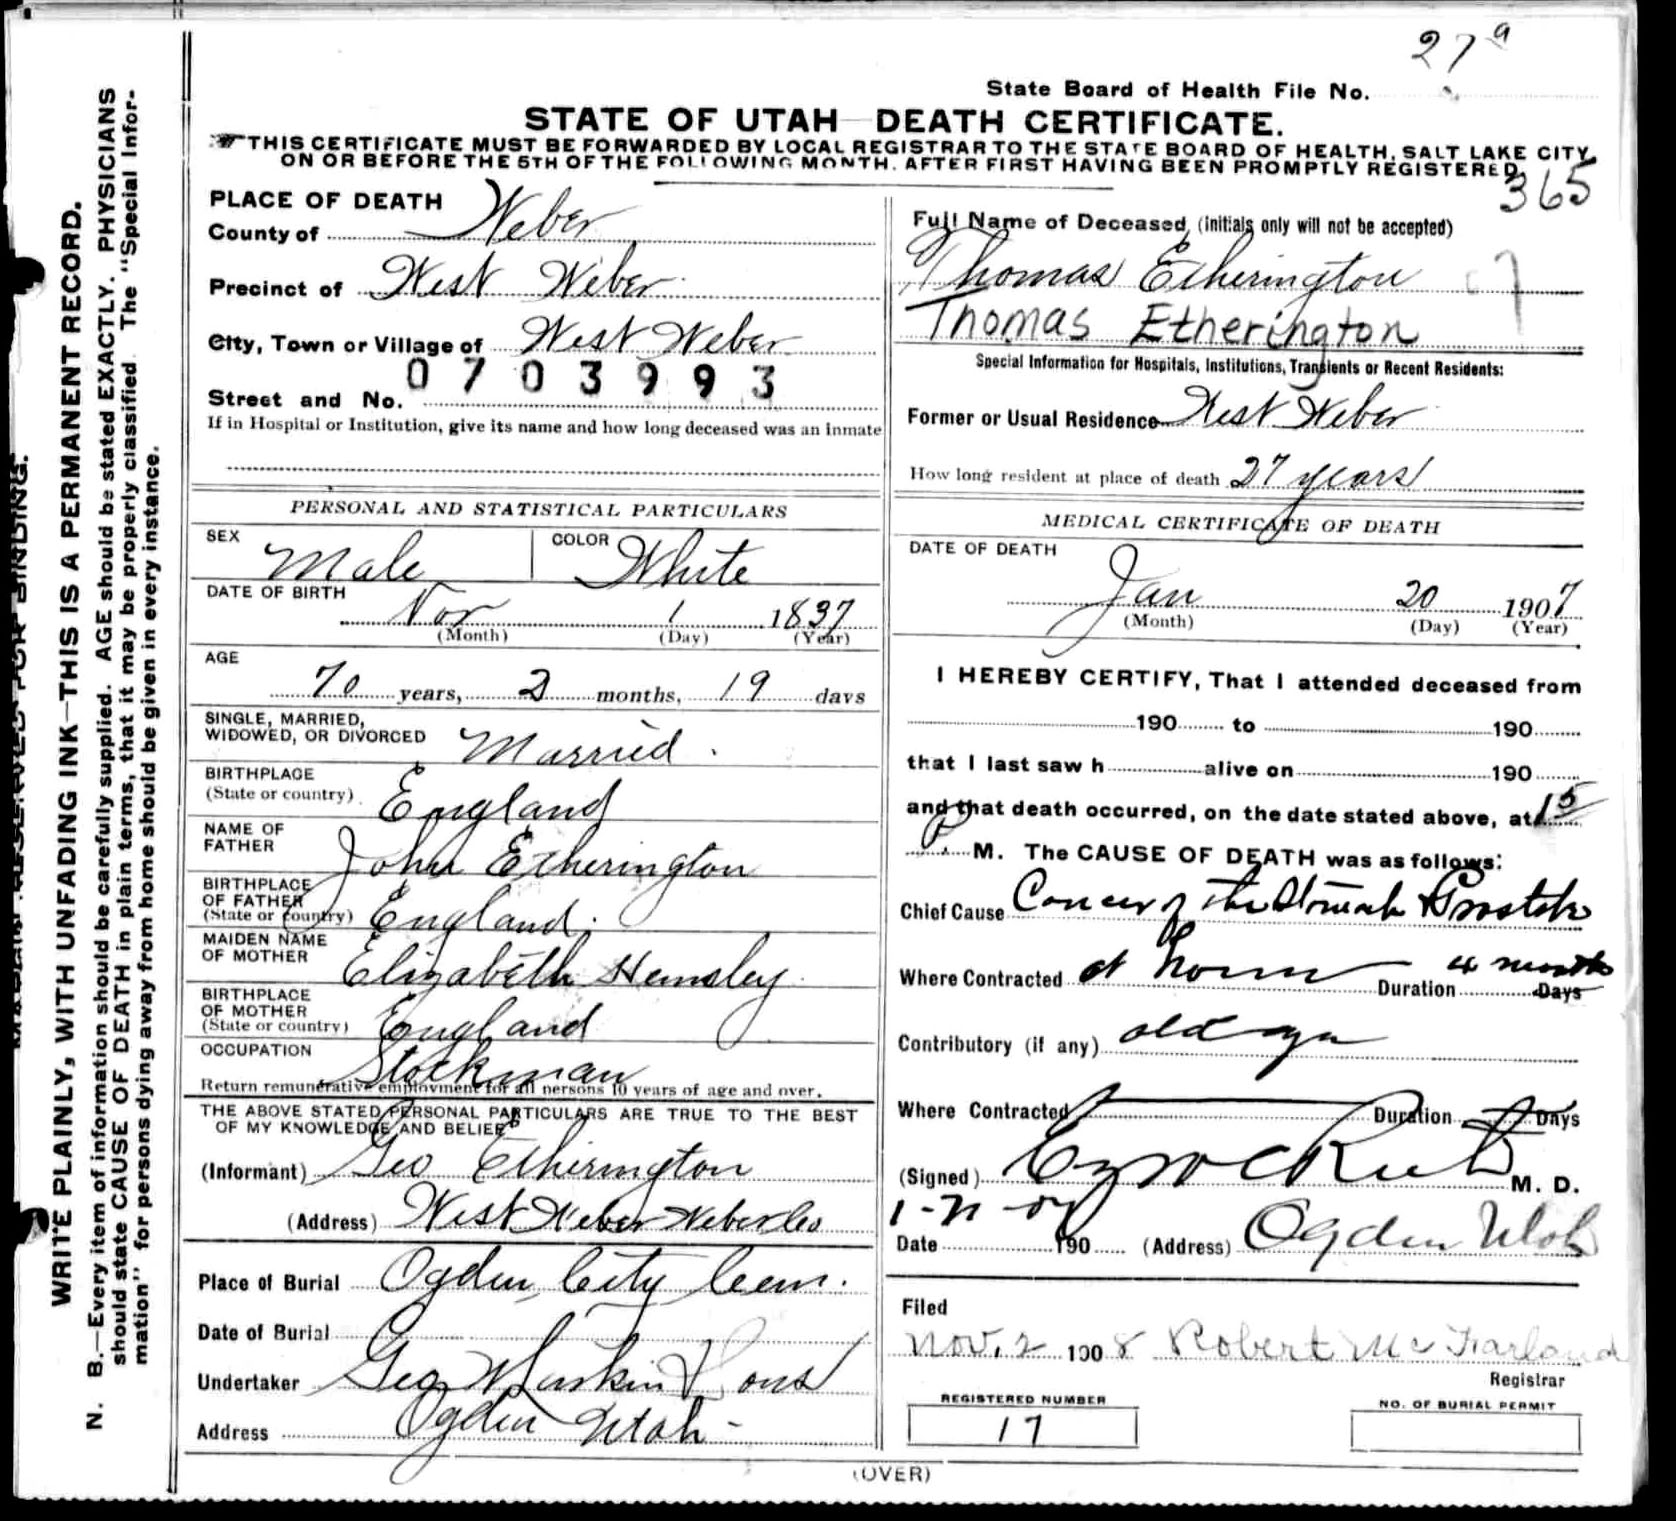 27 a
State Board of Health File No.
STATE OF UTAH—DEATH CERTIFICATE.
THIS CERTIFICATE MUST BE FORWARDED BY LOCAL REGISTRAR TO THE STATE BOARD OF HEALTH, SALT LAKE CITY,
ON OR BEFORE THE 5TH OF THE FOLLOWING MONTH, AFTER FIRST HAVING BEEN PROMPTLY REGISTERED.
365
WRITE PLAINLY, WITH UNFADING INK—THIS IS A PERMANENT RECORD.
N. B.—Every item of information should be carefully supplied. AGE should be stated EXACTLY. PHYSICIANS
should state CAUSE OF DEATH in plain terms, that it may be properly classified. The "Special Infor-
mation" for persons dying away from home should be given in every instance.
PLACE OF DEATH
County of Weber
Precinct of West Weber
City, Town or Village of West Weber
0703993
Street and No.
If in Hospital or Institution, give its name and how long deceased was an inmate
PERSONAL AND STATISTICAL PARTICULARS
SEX Male COLOR White
DATE OF BIRTH Nov 1 1837
(Month) (Day) (Year)
AGE 70 years, 2 months, 19 days
SINGLE, MARRIED,
WIDOWED, OR DIVORCED Married.
BIRTHPLACE
(State or country) England
NAME OF
FATHER John Etherington
BIRTHPLACE
OF FATHER
(State or country) England.
MAIDEN NAME
OF MOTHER Elizabeth Hemsley
BIRTHPLACE
OF MOTHER
(State or country) England
OCCUPATION Stockman
Return remunerative employment for all persons 10 years of age and over.
THE ABOVE STATED PERSONAL PARTICULARS ARE TRUE TO THE BEST
OF MY KNOWLEDGE AND BELIEF
(Informant) Geo Etherington
(Address) West Weber Weber Co
Place of Burial Ogden City Cem.
Date of Burial
Undertaker Geo W Larkin & Sons
Address Ogden Utah -
Full Name of Deceased (initials only will not be accepted)
Thomas Etherington
Thomas Etherington
Special Information for Hospitals, Institutions, Transients or Recent Residents:
Former or Usual Residence West Weber
How long resident at place of death 27 years
MEDICAL CERTIFICATE OF DEATH
DATE OF DEATH
Jan 20 1907
(Month) (Day) (Year)
I HEREBY CERTIFY, That I attended deceased from
190 to 190
that I last saw h alive on 190
and that death occurred, on the date stated above, at 15
P. M. The CAUSE OF DEATH was as follows:
Chief Cause Cancer of the Stomach & Prostate
Where Contracted at home Duration 4 months Days
Contributory (if any) old age
Where Contracted Duration Days
(Signed) M. D.
Date 190 (Address) Ogden Utah
Filed
Nov. 2 1908 Robert McFarland
Registrar
REGISTERED NUMBER
17
NO. OF BURIAL PERMIT
(OVER)